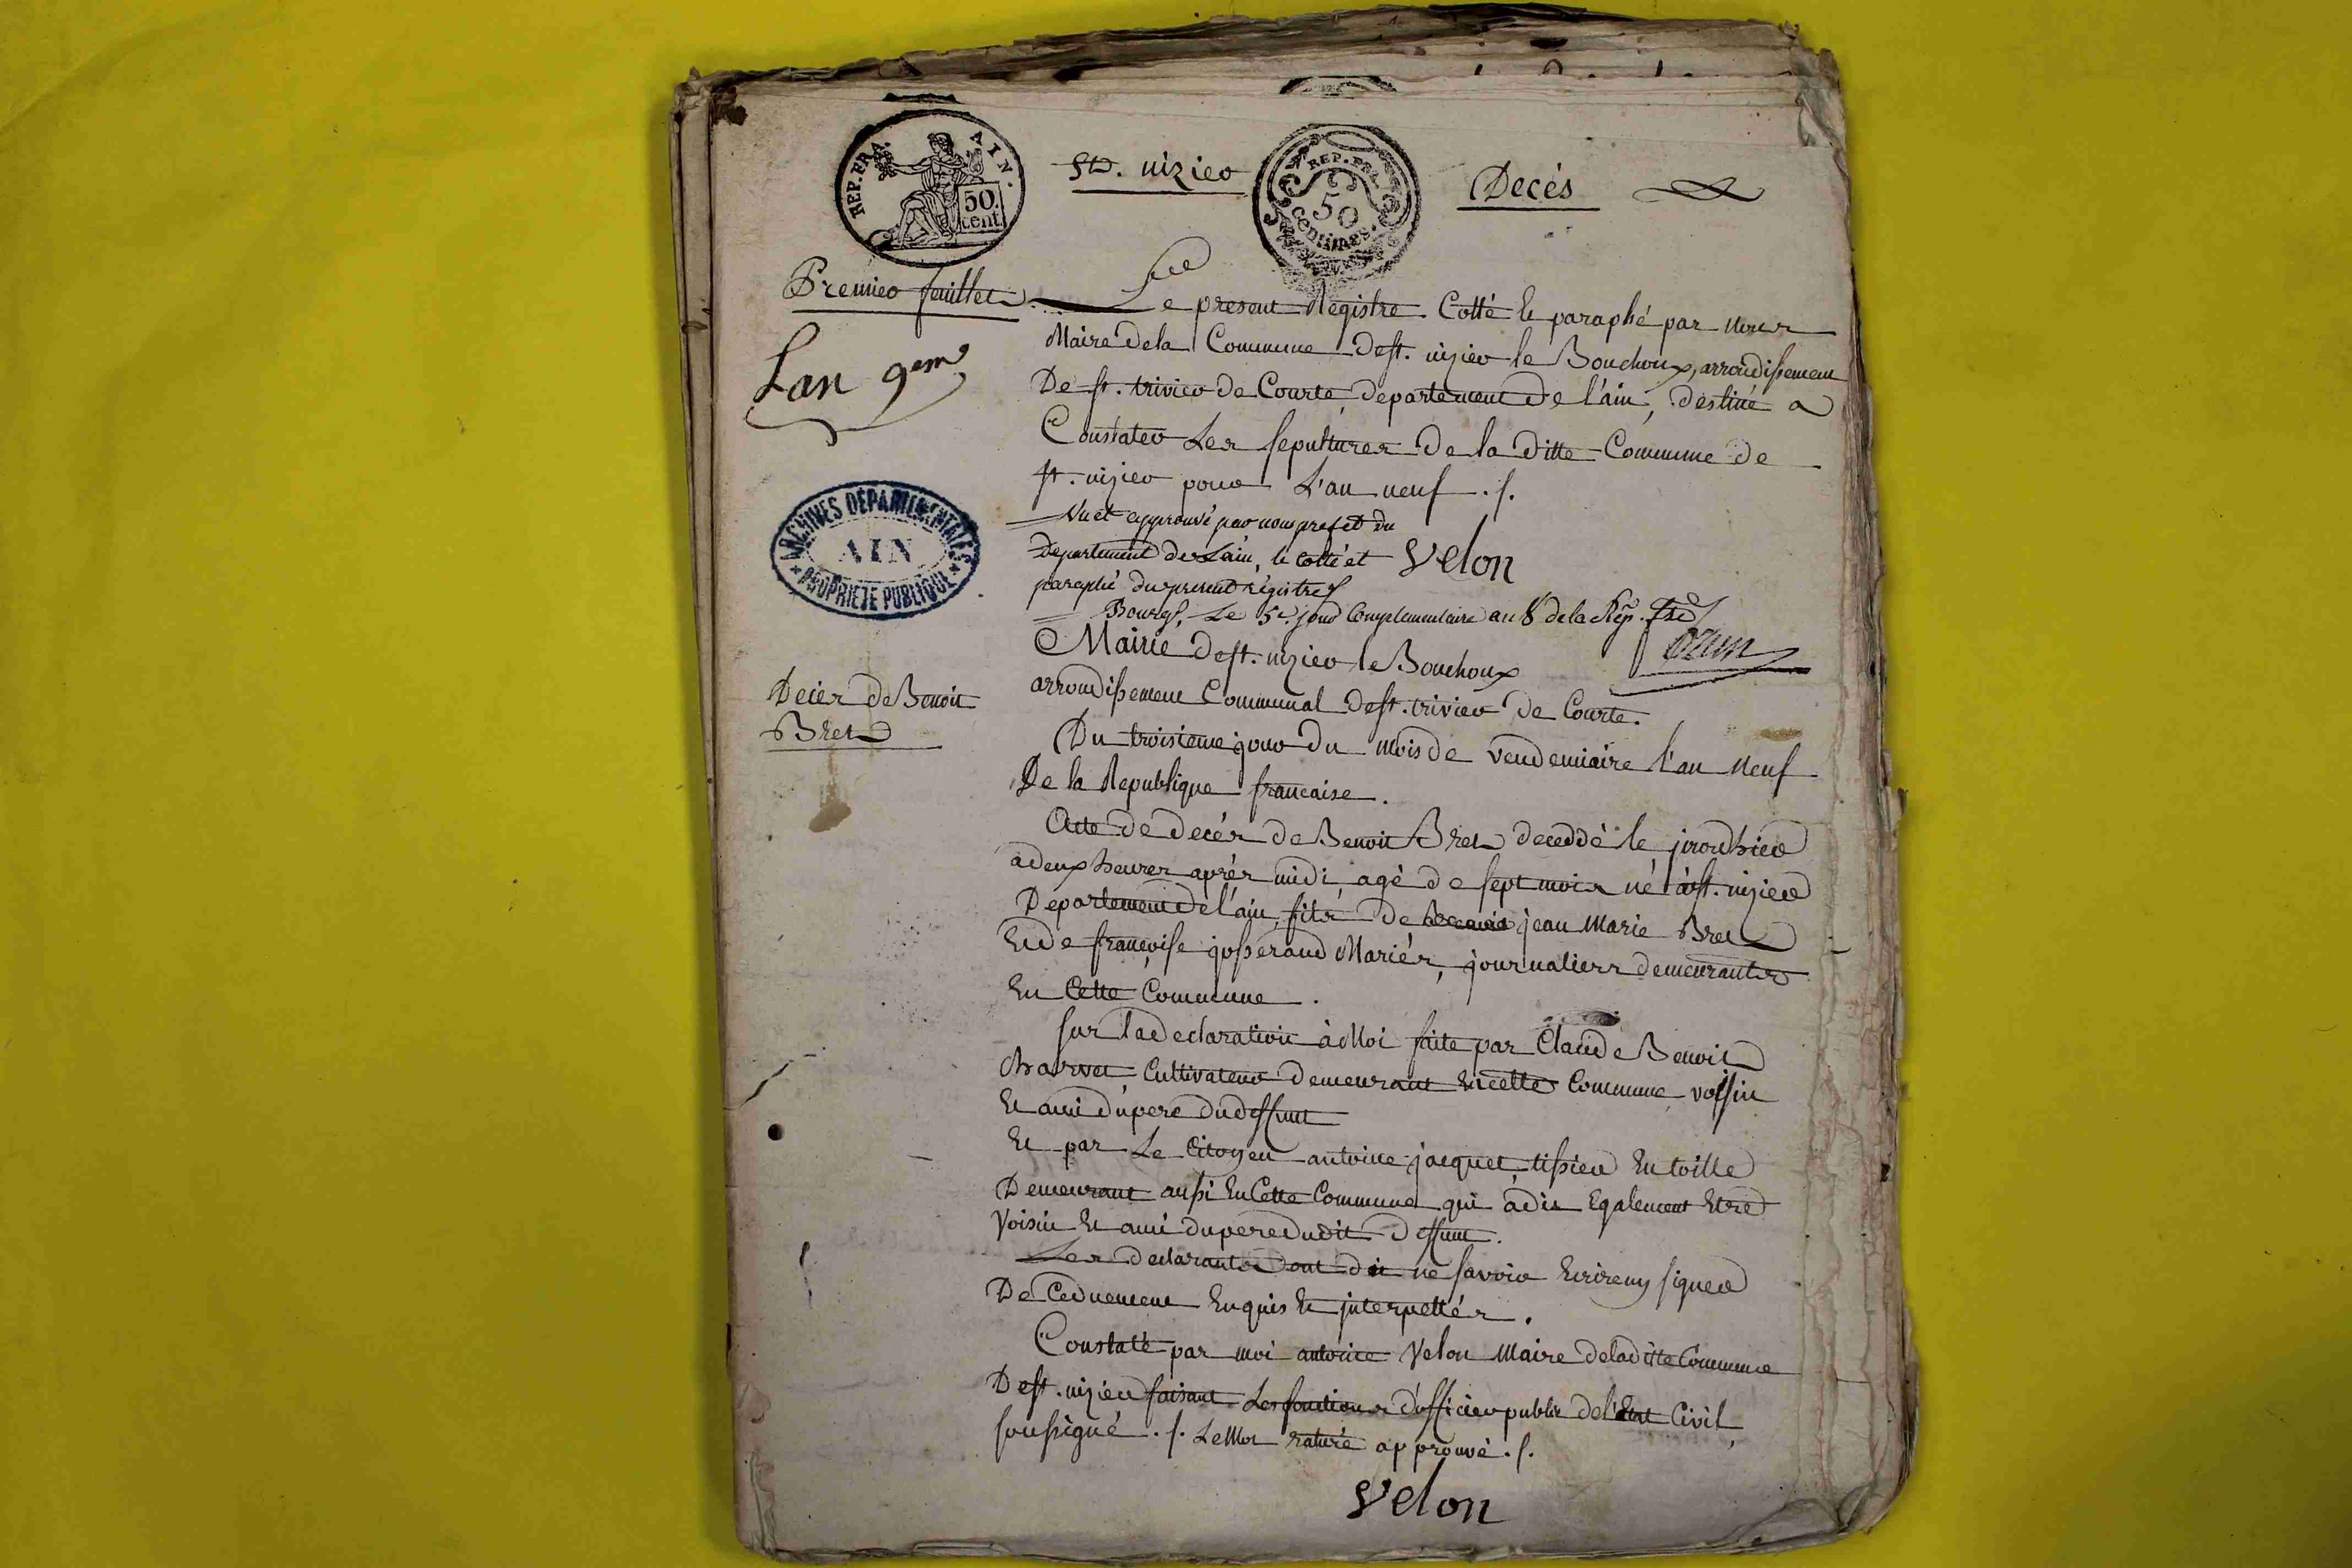 REP. FRA. AIN.
50.
cent.
St. nizier
REP. FRA.
50
centimes.
Decés
Premier feuillet
Le present Registre Cotté et paraphé par nous
Lan 9eme
Maire dela Commune de st. nizier le Bouchoux, arrondissement
De st. trivier de Courte, departement de l'ain, destiné a
Constater Les sepultures de la ditte Commune de
st. nizier pour L'an neuf ./.
Vu et approuvé par nous prefet du
Departement de Lain, le cotté et
paraphé du present régistre
Velon
ARCHIVES DÉPARTEMENTALES
AIN
PROPRIÉTÉ PUBLIQUE
Bourg, Le 5e. jour Complementaire an 8 de la Rép. fse
Mairie de st. nizier le Bouchoux
arrondissement Communal de st. trivier de Courte.
Decès de Benoit
Bret
Du troisieme jour du mois de vendemiaire l'an neuf
De la Republique francaise.
Acte de decès de Benoit Bret deceddé le jourd'hier
a deux heures après midi, agé de sept mois né à st. nizier
Departement de l'ain, fils de jean Marie Bret
Et de francoise josserand Mariés, journaliers demeurants
En Cette Commune.
sur la declaration à Moi faite par Claude Benoit
Charvet Cultivateur demeurant En cette Commune voisin
Et ami du pere du deffunt
Et par Le Citoyen antoine jacquet, tissier En toille
Demeurant aussi En Cette Commune qui à dit Egalement Etre
Voisin Et ami du pere du dit deffunt.
Les declarants ont dit ne savoir Ecrire ny signer
De Ceduement Enquis Et interpettés.
Constaté par moi antoine Velon Maire de la ditte Commune
De st. nizier faisant Les fonctions d'officier public de l'Etat Civil
soussigné ./. Le Mot raturé approuvé ./.
Velon